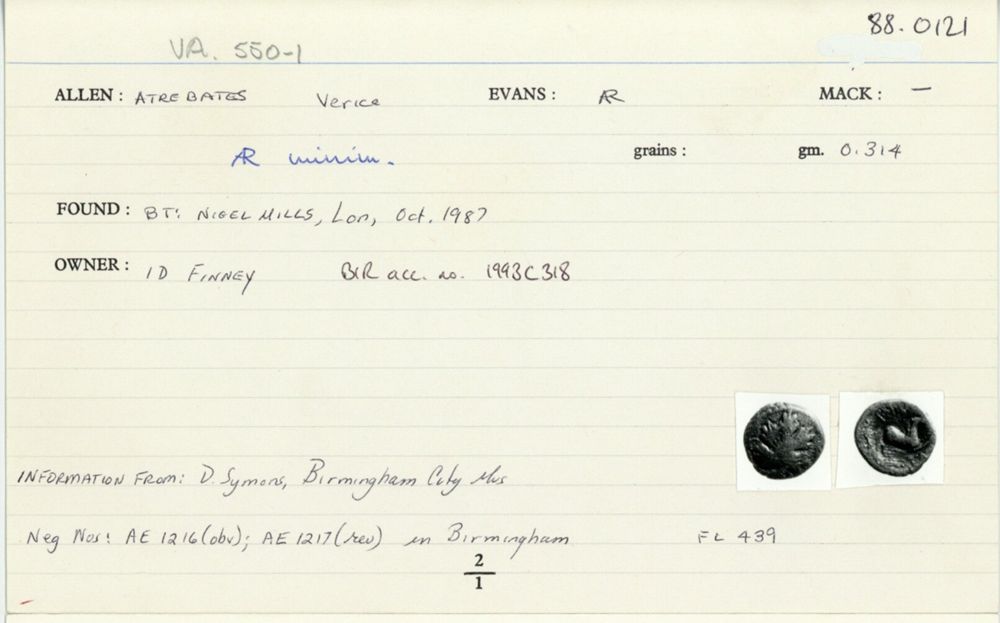 88.0121
VA. 550-1
ALLEN : ATREBATES Verica EVANS : AR MACK : —
AR minim. grains : gm. 0.314
FOUND : BT: NIGEL MILLS, Lon, Oct. 1987
OWNER : ID FINNEY BIR acc. no. 1993C318
INFORMATION FROM: D. Symons, Birmingham City Mus
Neg Nos: AE 1216(obv); AE 1217(rev) in Birmingham FL 439
2
1